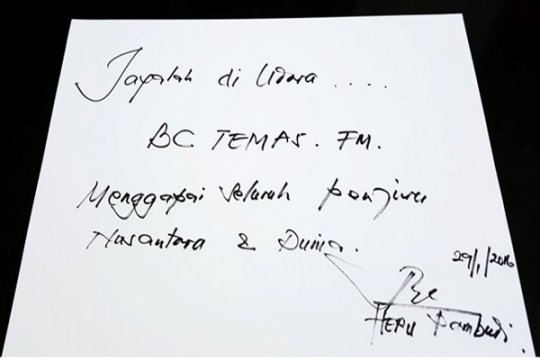 Jayalah di Udara ....
BC TEMAS. FM.
Menggapai seluruh penjuru
Nusantara & Dunia.
29/1/2016
HERU Pambudi.